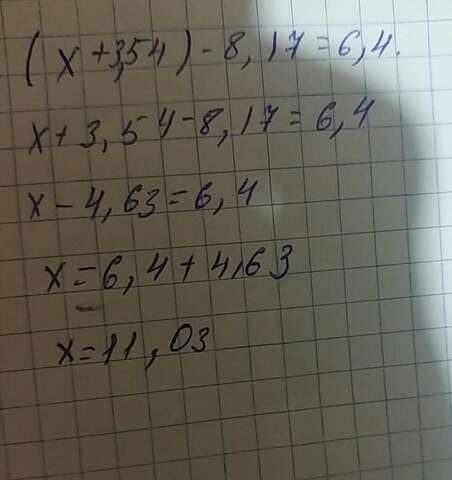 (x+3,54)-8,17=6,4.
x+3,54-8,17=6,4
x-4,63=6,4
x=6,4+4,63
x=11,03